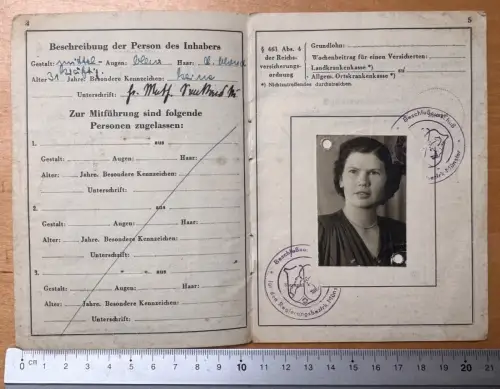 4
Beschreibung der Person des Inhabers
Gestalt: Augen: blau Haar:
Alter 31 Jahre. Besondere Kennzeichen: keine
Unterschrift:
Zur Mitführung sind folgende
Personen zugelassen:
1. aus
Gestalt: Augen: Haar:
Alter: Jahre. Besondere Kennzeichen:
Unterschrift:
2. aus
Gestalt: Augen: Haar:
Alter: Jahre. Besondere Kennzeichen:
Unterschrift:
3. " aus
Gestalt: Augen: Haar:
Alter: Jahre. Besondere Kennzeichen:
Unterschrift:
5
§ 461 Abs. 4
der Reichs-
versicherungs-
ordnung
Grundlohn:
Wochenbeitrag für einen Versicherten:
Landkrankenkasse *)
Allgem. Ortskrankenkasse *)
*) Nichtzutreffendes durchstreichen.
Beschlußausschuß
Münster
Beschluß
für den Regierungsbezirk
0 CM 1 2 3 4 5 6 7 8 9 10 11 12 13 14 15 16 17 18 19 20 21